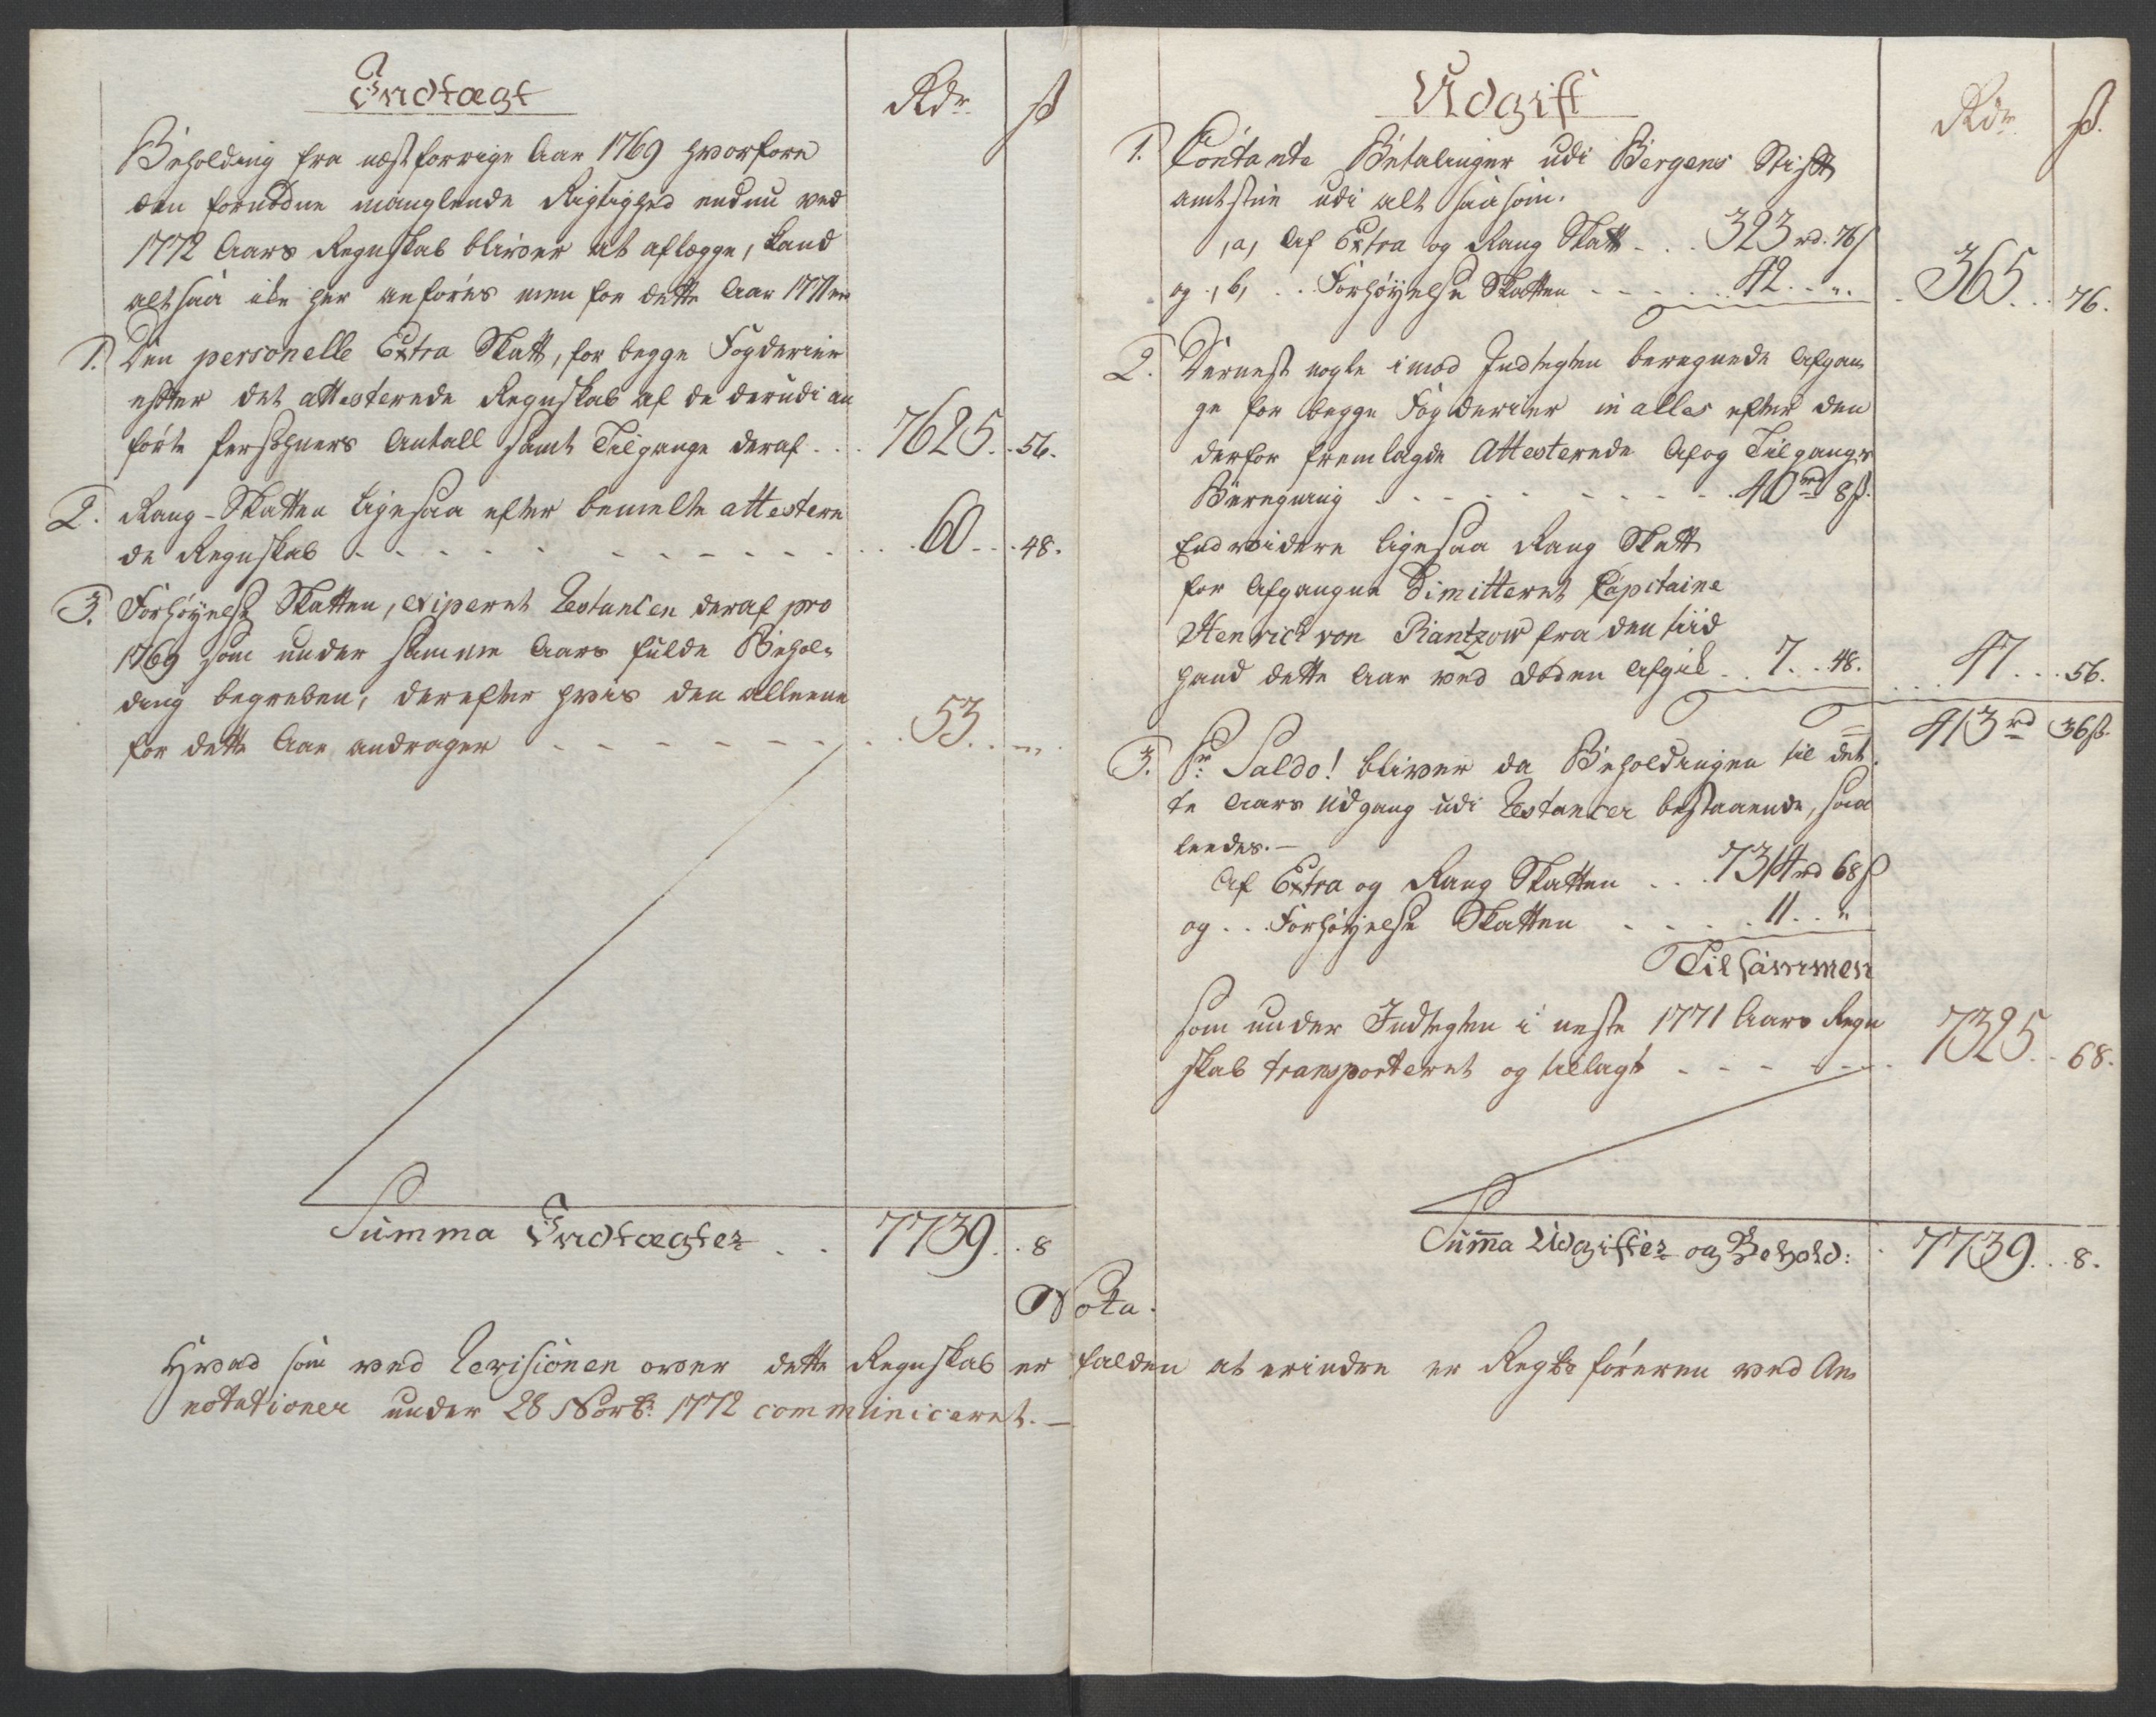 Indtægt
Rdr ß
Beholding fra næstforrige Aar 1769 hvorfore
den fornødne manglende Rigtighed endnu ved
1772 Aars Regnskab bliver at aflægge, kand
altsaa icke her anføres men for dette Aar
1. Den personelle Extra Skatt, for begge Fogderier
efter det attesterede Regnskab af de derudi an
førte Persohners Antall samt Tilgange deraf . . . 7625 . . 56.
2. Rang-Skatten ligesaa efter bemelte attestere
de Regnskab . . . 60 . . . 48.
3. Forhøyelse Skatten, exiperet Restancen deraf pro
1769 som under samme Aars fulde Behol-
ding begreben, derefter hvis den alleene
for dette Aar andrager . . . 53 . . "
Summa Indtægter . . 7739 . . 8
Udgift
Rdr ß.
1. Contante Betalinger udi Bergens Stift
amtstue udi alt saasom.
,a, Af Extra og Rang Skatt . . . 323 rd. 76 ß
og ,b, . . Forhøyelse Skatten . . . 42 . . ". 365 . . . 76.
2. Dernest nogle imod Indtegten beregnede Afgan
ge for begge Fogderier in alles efter den
derfor fremlagde Attesterede Af og Tilgangs
Beregning . . . 40 rd 8 ß.
Endvidere ligesaa Rang Skatt
for Afgangne Dimitteret Capitaine
Henrich von Rantzow fra den tiid
hand dette Aar ved Døden Afgik . . 7 . . 48. 47 . . . 56.
413 rd 36 ß.
3. Pr Saldo! bliver da Beholdningen til det
te Aars Udgang udi Restancer bestaaende, saa
leedes. —
Af Extra og Rang Skatten . . . 7314 rd 68 ß
og . . . Forhøyelse Skatten . . . 11 . . "
Tilsammen
som under Indtegten i neste 1771 Aars Regn
skab transporteret og tillagt . . . 7325 . . 68.
Summa Udgifter og Behold: . 7739 . . . 8.
Nota.
Hvad som ved Revisionen over dette Regnskab er falden at erindre er Regnsk føreren ved An
notationer under 28 Novb: 1772 communiceret. —